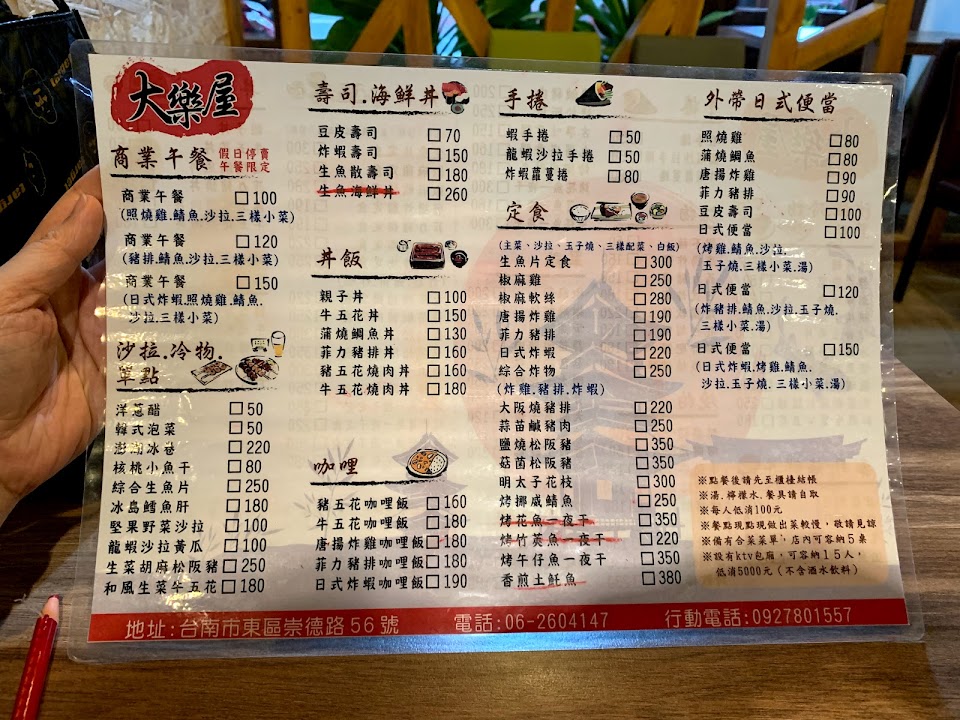 大樂屋
商業午餐 假日停賣
午餐限定
商業午餐 □100
(照燒雞.鯖魚.沙拉.三樣小菜)
商業午餐 □120
(豬排.鯖魚.沙拉.三樣小菜)
商業午餐 □150
(日式炸蝦.照燒雞.鯖魚.
沙拉.三樣小菜)
沙拉.冷物.
單點
洋蔥醋 □50
韓式泡菜 □50
澎湖冰卷 □220
核桃小魚干 □80
綜合生魚片 □250
冰島鱈魚肝 □180
堅果野菜沙拉 □100
龍蝦沙拉黃瓜 □100
生菜胡麻松阪豬 □250
和風生菜牛五花 □180
壽司.海鮮丼
豆皮壽司 □70
炸蝦壽司 □150
生魚散壽司 □180
生魚海鮮丼 □260
丼飯
親子丼 □100
牛五花丼 □150
蒲燒鯛魚丼 □130
菲力豬排丼 □160
豬五花燒肉丼 □160
牛五花燒肉丼 □180
咖哩
豬五花咖哩飯 □160
牛五花咖哩飯 □180
唐揚炸雞咖哩飯 □180
菲力豬排咖哩飯 □180
日式炸蝦咖哩飯 □190
手捲
蝦手捲 □50
龍蝦沙拉手捲 □50
炸蝦蘿蔓捲 □80
定食
(主菜、沙拉、玉子燒、三樣配菜、白飯)
生魚片定食 □300
椒麻雞 □250
椒麻軟絲 □280
唐揚炸雞 □190
菲力豬排 □190
日式炸蝦 □220
綜合炸物 □250
(炸雞.豬排.炸蝦)
大阪燒豬排 □220
蒜苗鹹豬肉 □250
鹽燒松阪豬 □350
菇菌松阪豬 □350
明太子花枝 □300
烤挪威鯖魚 □250
烤花魚一夜干 □350
烤竹莢魚一夜干 □220
烤午仔魚一夜干 □350
香煎土魠魚 □380
外帶日式便當
照燒雞 □80
蒲燒鯛魚 □80
唐揚炸雞 □90
菲力豬排 □90
豆皮壽司 □100
日式便當 □100
(烤雞.鯖魚.沙拉.
玉子燒.三樣小菜.湯)
日式便當 □120
(炸豬排.鯖魚.沙拉.玉子燒.
三樣小菜.湯)
日式便當 □150
(日式炸蝦.烤雞.鯖魚.
沙拉.玉子燒.三樣小菜.湯)
※點餐後請先至櫃檯結帳
※湯、檸檬水、餐具請自取
※每人低消100元
※餐點現點現做出菜較慢，敬請見諒
※備有合菜菜單，店內可容納5桌
※設有ktv包廂，可容納15人，
低消5000元 (不含酒水飲料)
地址:台南市東區崇德路56號 電話:06-2604147 行動電話:0927801557